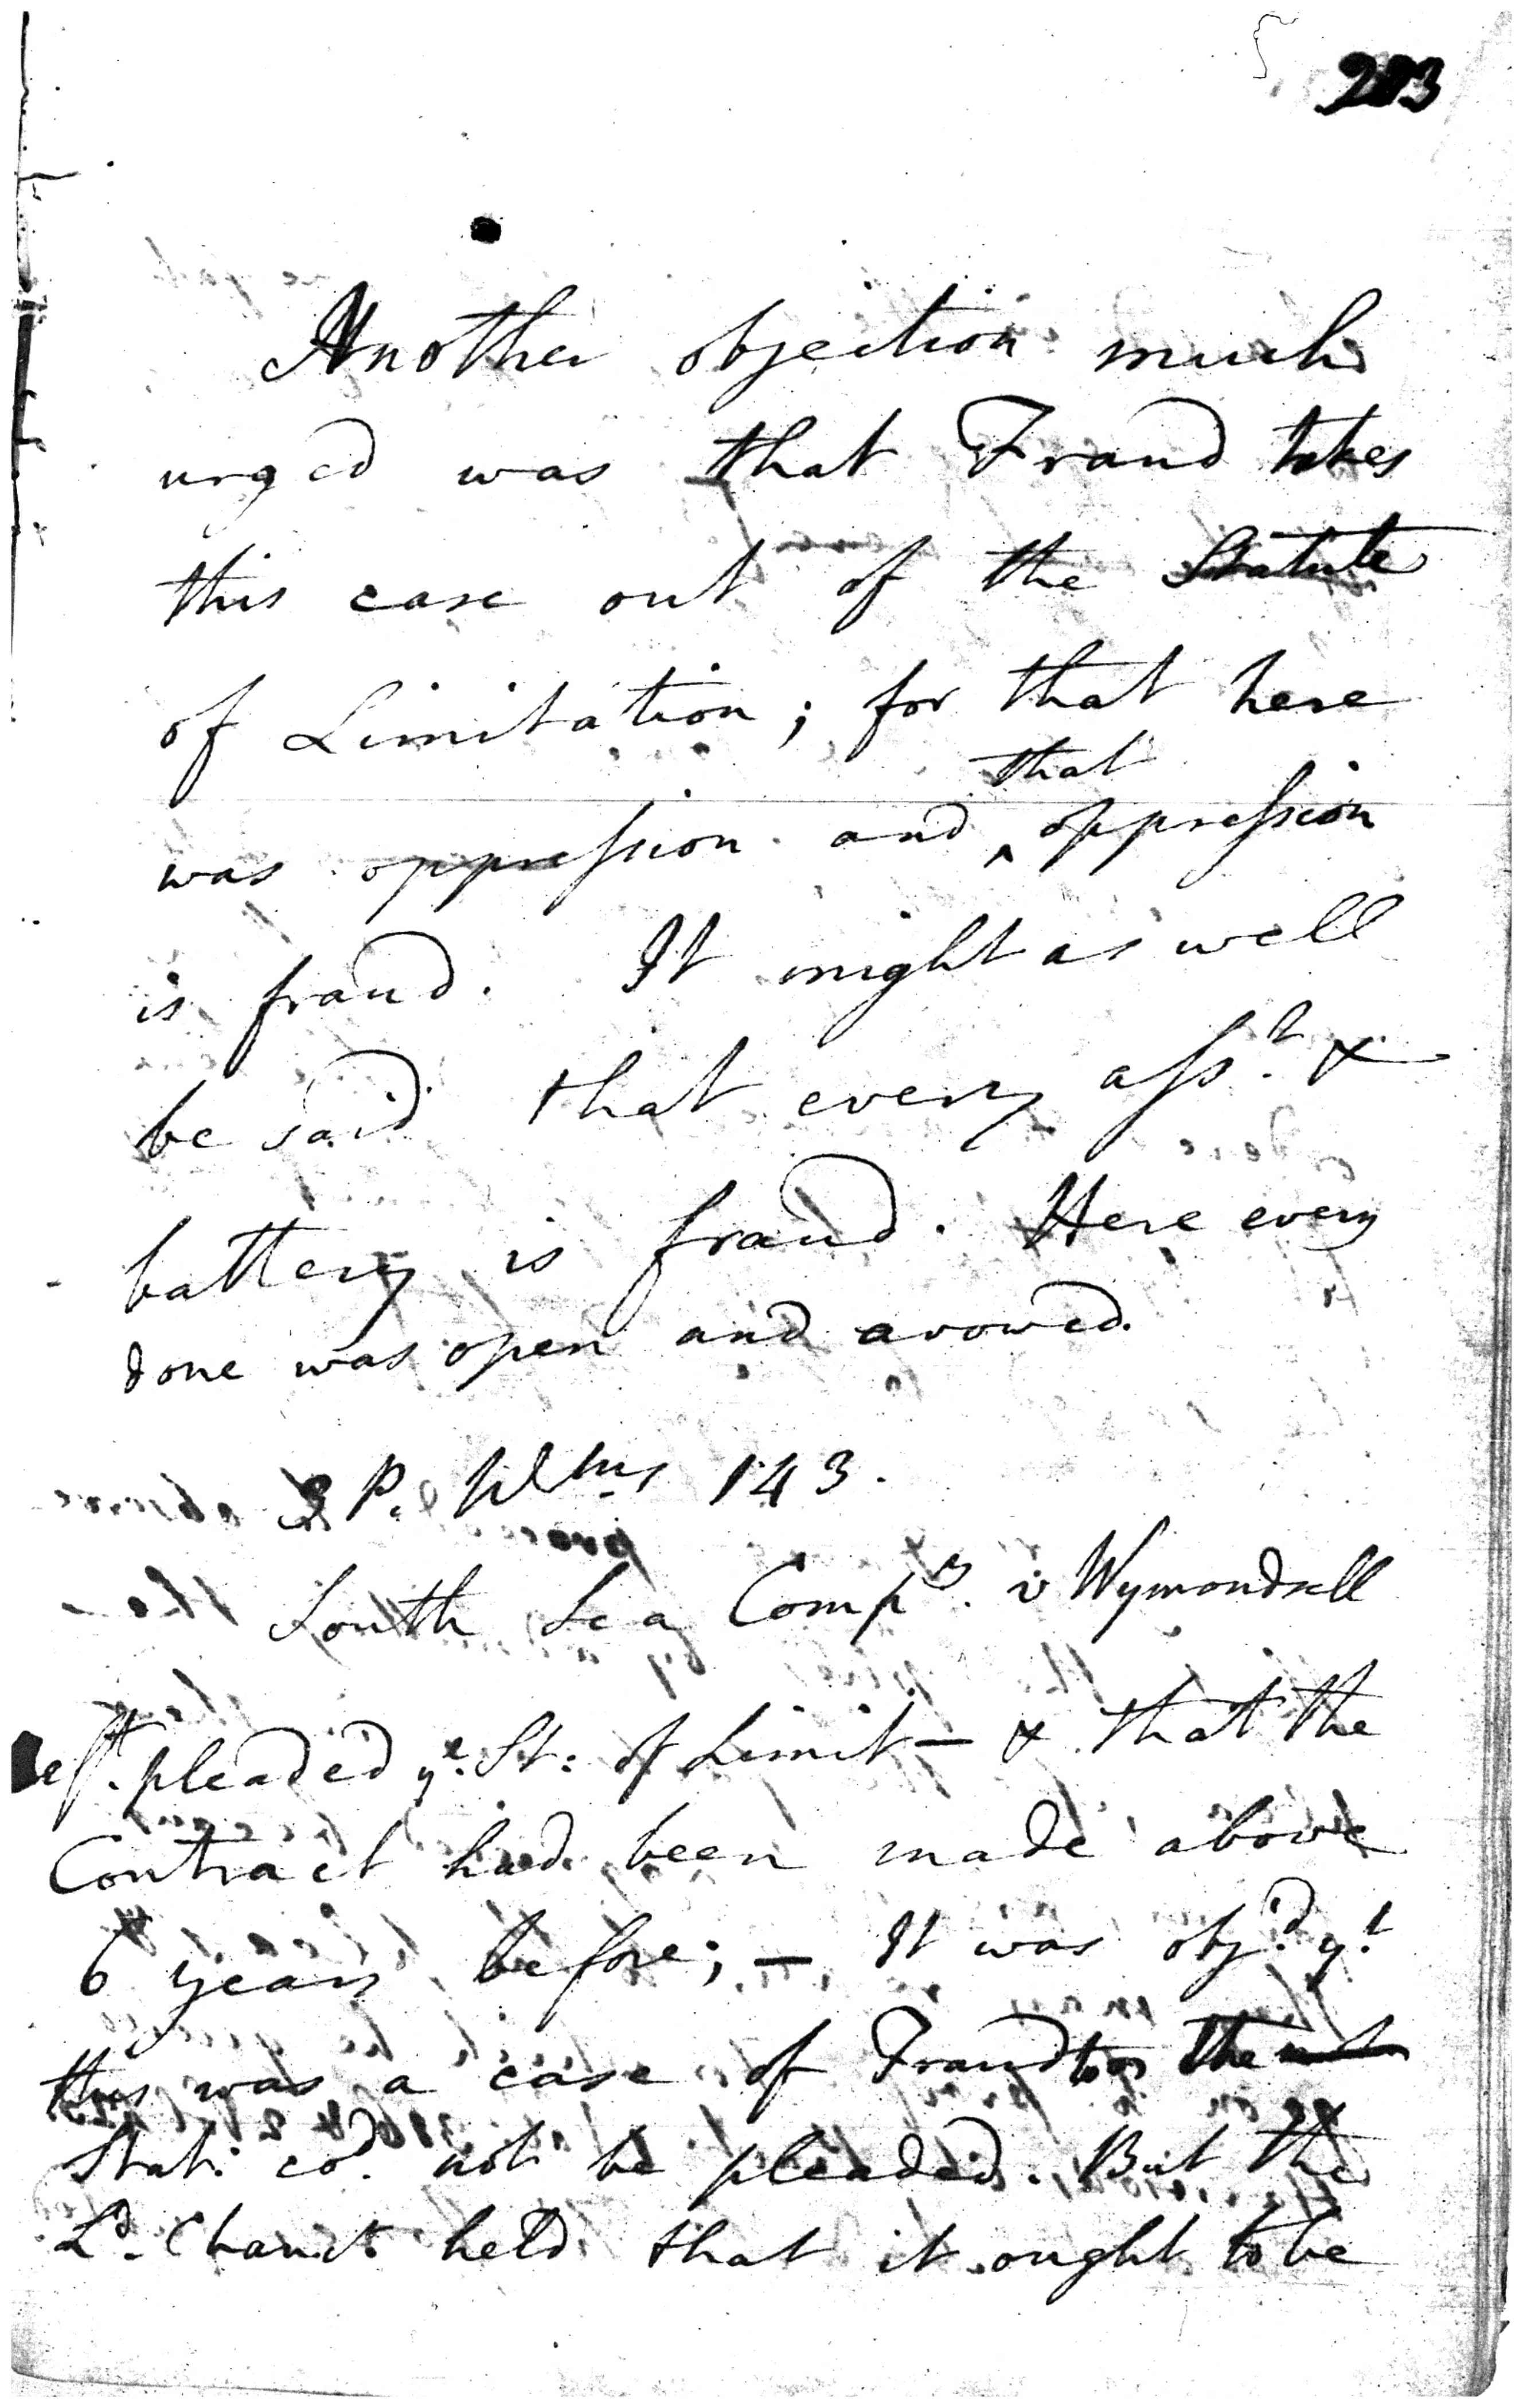 203
Another objection much
urged was that Fraud takes
this case out of the Statute
of Limitation; for that here
was oppression and ^that oppression
is fraud. It might as well
be said that every asst. &
battery is fraud. Here every
done was open and avowed.
P. Wms 143.
South Sea Compy. v Wymondsell
Deft. pleaded ye. St: of Limit— & that the
Contract had been made above
6 years before; — It was objd. yt
this was a case of Fraud & the
Stat: cod. not be pleaded. But the
Ld. Chanr. held that it ought to be